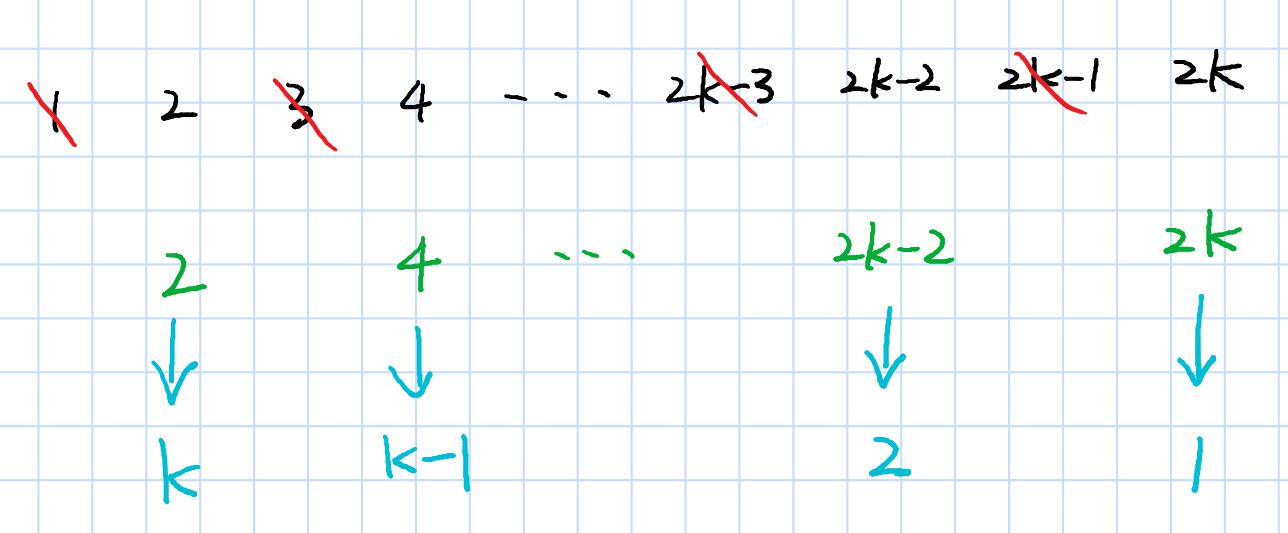 1 2 3 4 --- 2k-3 2k-2 2k-1 2k
2 4 --- 2k-2 2k
↓ ↓ ↓ ↓
k k-1 2 1